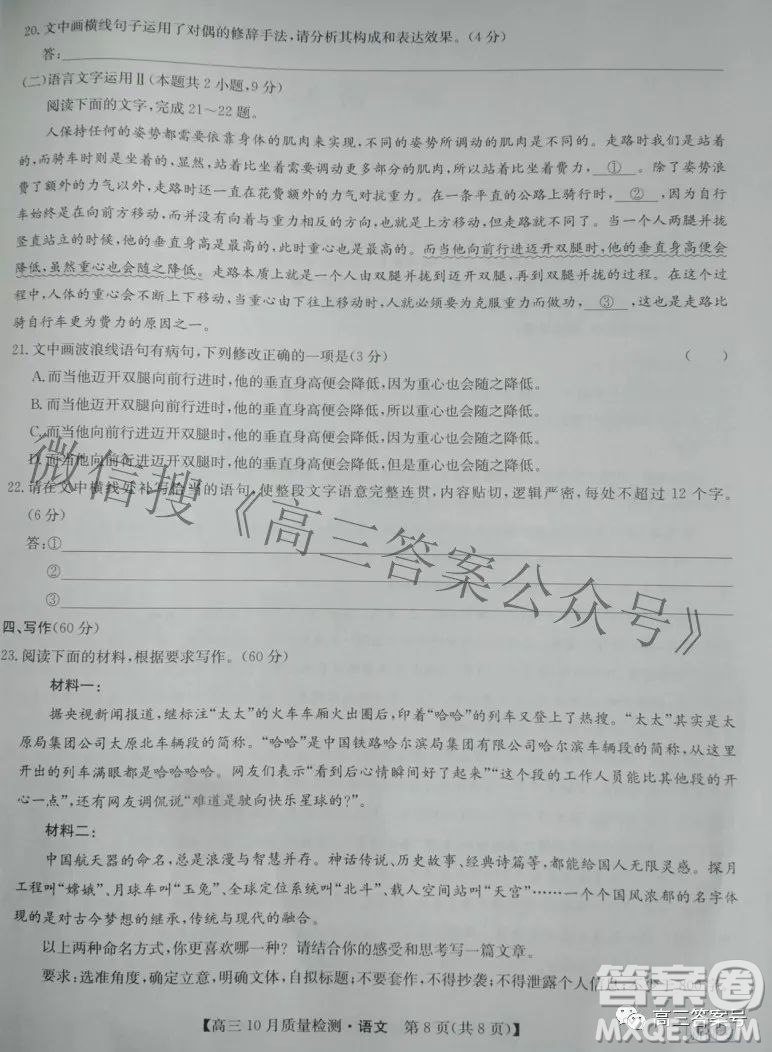 20.文中画横线句子运用了对偶的修辞手法,请分析其构成和表达效果。(4分)
答:
(二)语言文字运用Ⅱ(本题共2小题,9分)
阅读下面的文字,完成21～22题。
人保持任何的姿势都需要依靠身体的肌肉来实现,不同的姿势所调动的肌肉是不同的。走路时我们是站着
的,而骑车时则是坐着的,显然,站着比坐着需要调动更多部分的肌肉,所以站着比坐着费力,①。除了姿势浪
费了额外的力气以外,走路时还一直在花费额外的力气对抗重力。在一条平直的公路上骑行时,②,因为自行
车始终是在向前方移动,而并没有向着与重力相反的方向,也就是上方移动,但走路就不同了。当一个人两腿并拢
竖直站立的时候,他的垂直身高是最高的,此时重心也是最高的。而当他向前行进迈开双腿时,他的垂直身高便会
降低,虽然重心也会随之降低。走路本质上就是一个人由双腿并拢到迈开双腿,再到双腿并拢的过程。在这个过
程中,人体的重心会不断上下移动,当重心由下往上移动时,人就必须要为克服重力而做功,③,这也是走路比
骑自行车更为费力的原因之一。
21.文中画波浪线语句有病句,下列修改正确的一项是(3分) ( )
A.而当他迈开双腿向前行进时,他的垂直身高便会降低,因为重心也会随之降低。
B.而当他迈开双腿向前行进时,他的垂直身高便会降低,所以重心也会降低。
C.而当他向前行进迈开双腿时,他的垂直身高便会降低,重心也会随之降低。
D.而当他向前行进迈开双腿时,他的垂直身高便会降低,但是重心也会降低。
22.请在文中横线处补写恰当的语句,使整段文字语意完整连贯,内容贴切,逻辑严密,每处不超过12个字。
(6分)
答:①
②
③
四、写作(60分)
23.阅读下面的材料,根据要求写作。(60分)
材料一:
据央视新闻报道,继标注“太太”的火车车厢火出圈后,印着“哈哈”的列车又登上了热搜。“太太”其实是太
原局集团公司太原北车辆段的简称。“哈哈”是中国铁路哈尔滨局集团有限公司哈尔滨车辆段的简称,从这里
开出的列车满眼都是哈哈哈哈。网友们表示“看到后心情瞬间好了起来”“这个段的工作人员能比别的段的开
心一点”,还有网友调侃说“难道是驶向快乐星球的?”。
材料二:
中国航天器的命名,总是浪漫与智慧并存。神话传说、历史故事、经典诗篇等,都能给国人无限灵感。探月
工程叫“嫦娥”、月球车叫“玉兔”、全球定位系统叫“北斗”、载人空间站叫“天宫”……一个个国风浓郁的名字体
现的是对古今梦想的继承,传统与现代的融合。
以上两种命名方式,你更喜欢哪一种?请结合你的感受和思考写一篇文章。
要求:选准角度,确定立意,明确文体,自拟标题;不要套作,不得抄袭;不得泄露个人信
【高三10月质量检测·语文 第8页(共8页)】
微信搜《高三答案公众号》
答案圈
MXQE.COM
高三答案号